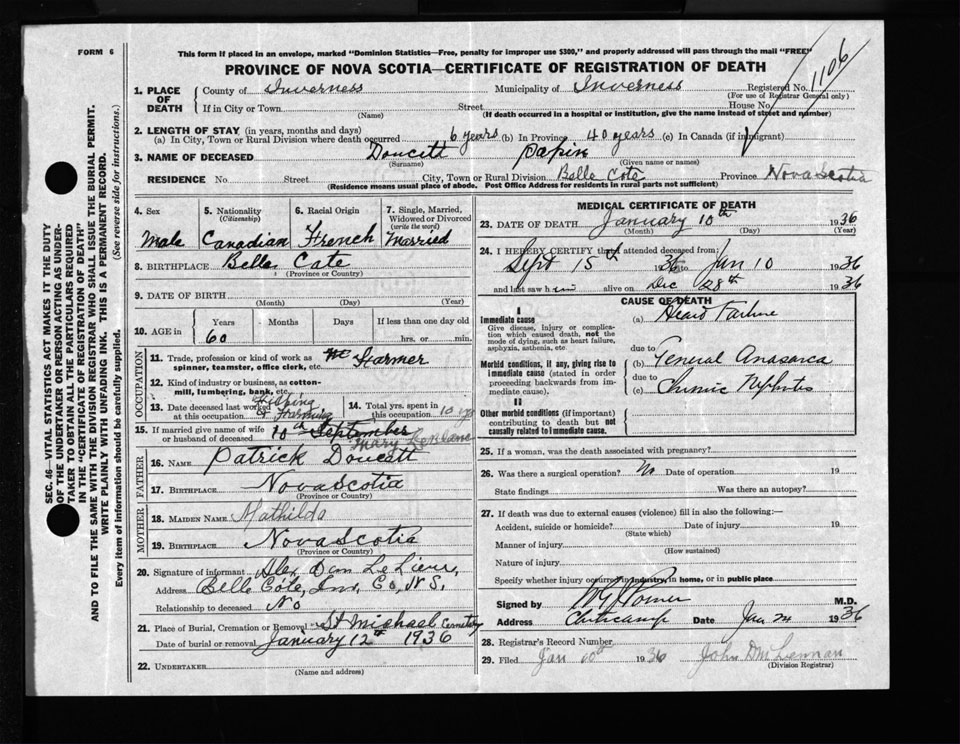 FORM 6
This form if placed in an envelope, marked "Dominion Statistics—Free, penalty for improper use $300," and properly addressed will pass through the mail "FREE"
PROVINCE OF NOVA SCOTIA—CERTIFICATE OF REGISTRATION OF DEATH
1106
1. PLACE OF DEATH
County of Inverness Municipality of Inverness Registered No.
(For use of Registrar General only)
If in City or Town Street House No.
(Name) (If death occurred in a hospital or institution, give the name instead of street and number)
2. LENGTH OF STAY (in years, months and days)
(a) In City, Town or Rural Division where death occurred 6 years (b) In Province 40 years (c) In Canada (if immigrant)
3. NAME OF DECEASED Doucett
(Surname) (Given name or names)
RESIDENCE No Street City, Town or Rural Division Belle Cote Province Nova Scotia
(Residence means usual place of abode. Post Office Address for residents in rural parts not sufficient)
4. Sex 5. Nationality (Citizenship) 6. Racial Origin 7. Single, Married, Widowed or Divorced (write the word)
Male Canadian French Married
8. BIRTHPLACE Belle Cate
(Province or Country)
9. DATE OF BIRTH
(Month) (Day) (Year)
10. AGE in Years Months Days If less than one day old
60 hrs. or min.
OCCUPATION
11. Trade, profession or kind of work as spinner, teamster, office clerk, etc. Farmer
12. Kind of industry or business, as cotton-mill, lumbering, bank, etc.
13. Date deceased last worked at this occupation Farming
14. Total yrs. spent in this occupation 10 yrs
15. If married give name of wife or husband of deceased 10th September
Mary
FATHER
16. NAME Patrick Doucett
17. BIRTHPLACE Nova Scotia
(Province or Country)
MOTHER
18. MAIDEN NAME Mathilda
19. BIRTHPLACE Nova Scotia
(Province or Country)
20. Signature of informant Alex Dan
Address Belle Côte, Inv. Co, N.S.
Relationship to deceased No
21. Place of Burial, Cremation or Removal St Michael Cemetery
Date of burial or removal January 12th 1936
22. UNDERTAKER
(Name and address)
MEDICAL CERTIFICATE OF DEATH
23. DATE OF DEATH January 10th 1936
(Month) (Day) (Year)
24. I HEREBY CERTIFY that I attended deceased from:
Sept 15th 1936 to Jan 10 1936
and last saw him alive on Dec 28th 1936
CAUSE OF DEATH
I
Immediate cause
Give disease, injury or complication which caused death, not the mode of dying, such as heart failure, asphyxia, asthenia, etc.
(a) Heart Failure
due to
Morbid conditions, if any, giving rise to immediate cause (stated in order proceeding backwards from immediate cause).
(b) General Anasarca
due to
(c) Chronic Nephritis
II
Other morbid conditions (if important) contributing to death but not causally related to immediate cause.
25. If a woman, was the death associated with pregnancy?
26. Was there a surgical operation? No Date of operation 19
State findings Was there an autopsy?
27. If death was due to external causes (violence) fill in also the following:—
Accident, suicide or homicide? Date of injury 19
(State which)
Manner of injury
(How sustained)
Nature of injury
Specify whether injury occurred in industry, in home, or in public place
Signed by M.D.
Address Cheticamp Date Jan 1936
28. Registrar's Record Number
29. Filed Jan 10th 1936 John D McLennan
(Division Registrar)
SEC. 46—VITAL STATISTICS ACT MAKES IT THE DUTY OF THE UNDERTAKER OR PERSON ACTING AS UNDERTAKER TO OBTAIN ALL THE PARTICULARS REQUIRED IN THE "CERTIFICATE OF REGISTRATION OF DEATH" AND TO FILE THE SAME WITH THE DIVISION REGISTRAR WHO SHALL ISSUE THE BURIAL PERMIT.
WRITE PLAINLY WITH UNFADING INK. THIS IS A PERMANENT RECORD.
Every item of information should be carefully supplied. (See reverse side for instructions.)